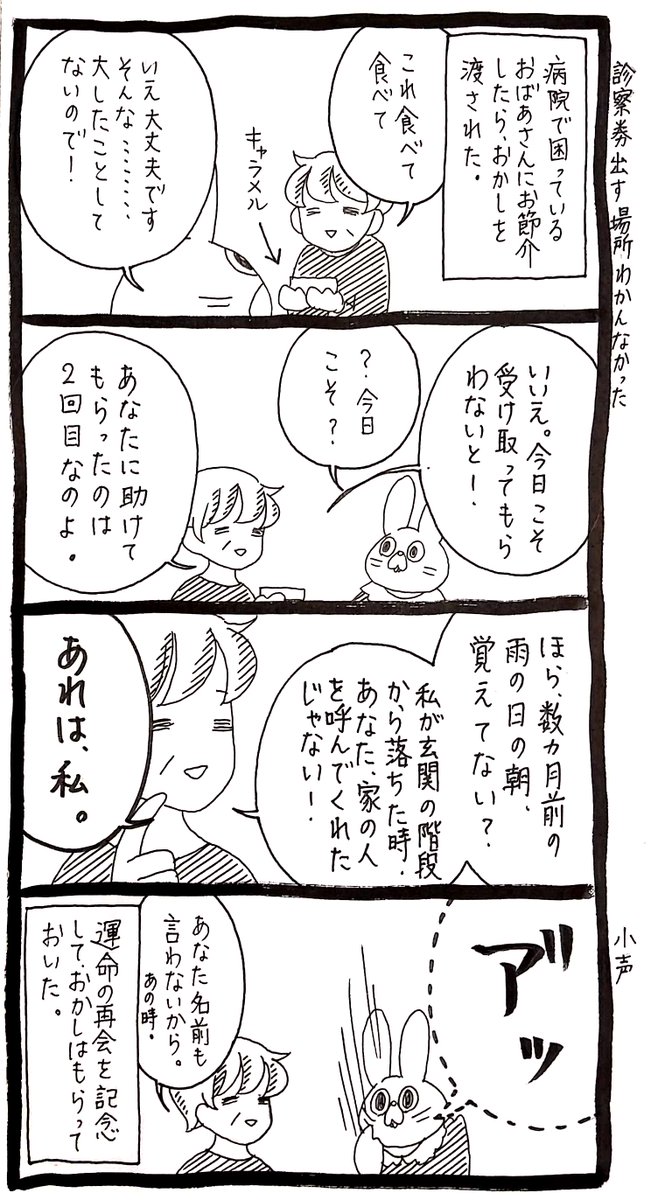 診察券出す場所わかんなかった
病院で困っている
おばあさんにお節介
したら、おかしを
渡された。
これ食べて
食べて
キャラメル
いえ大丈夫です
そんな………、
大したことして
ないので!
いいえ。今日こそ
受け取ってもら
わないと!
?今日
こそ?
あなたに助けて
もらったのは
2回目なのよ。
ほら、数ヵ月前の
雨の日の朝、
覚えてない?
私が玄関の階段
から落ちた時、
あなた、家の人
を呼んでくれた
じゃない!
あれは、私。
小声
アッ
あなた名前も
言わないから。
あの時。
運命の再会を記念
して、おかしはもらって
おいた。